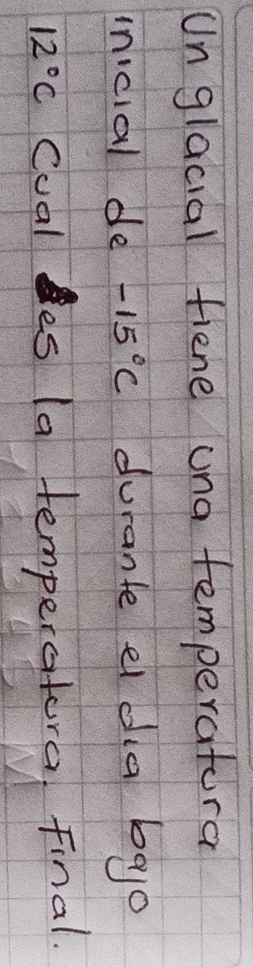 Un glacial tiene una temperatura
inicial de -15°C durante el dia bajo
12°C Cual es la temperatura. Final.